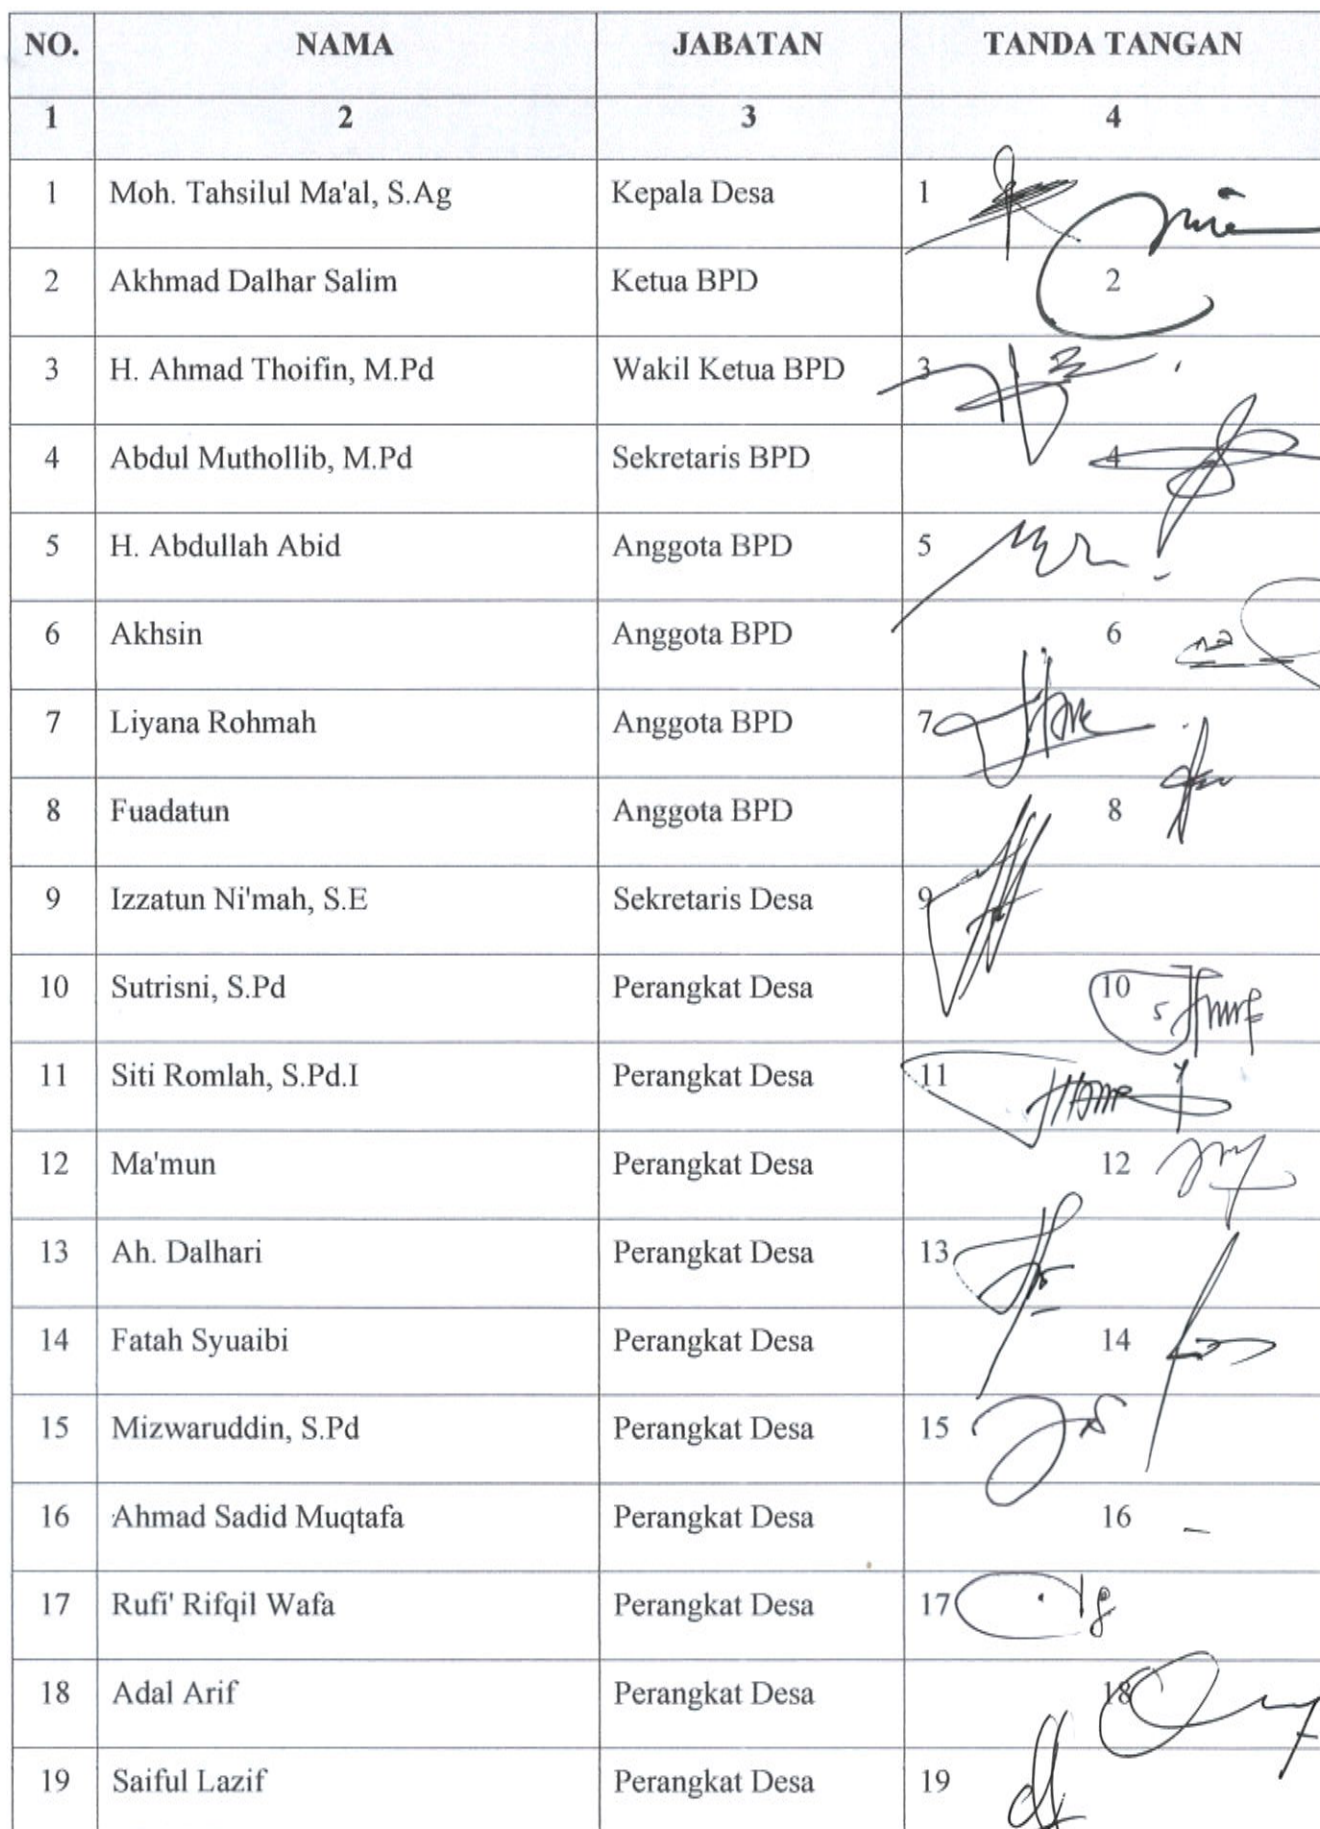 NO. NAMA JABATAN TANDA TANGAN
1 2 3 4
1 Moh. Tahsilul Ma'al, S.Ag Kepala Desa 1
2 Akhmad Dalhar Salim Ketua BPD 2
3 H. Ahmad Thoifin, M.Pd Wakil Ketua BPD 3
4 Abdul Muthollib, M.Pd Sekretaris BPD 4
5 H. Abdullah Abid Anggota BPD 5
6 Akhsin Anggota BPD 6
7 Liyana Rohmah Anggota BPD 7
8 Fuadatun Anggota BPD 8
9 Izzatun Ni'mah, S.E Sekretaris Desa 9
10 Sutrisni, S.Pd Perangkat Desa 10
11 Siti Romlah, S.Pd.I Perangkat Desa 11
12 Ma'mun Perangkat Desa 12
13 Ah. Dalhari Perangkat Desa 13
14 Fatah Syuaibi Perangkat Desa 14
15 Mizwaruddin, S.Pd Perangkat Desa 15
16 Ahmad Sadid Muqtafa Perangkat Desa 16 -
17 Rufi' Rifqil Wafa Perangkat Desa 17
18 Adal Arif Perangkat Desa 18
19 Saiful Lazif Perangkat Desa 19